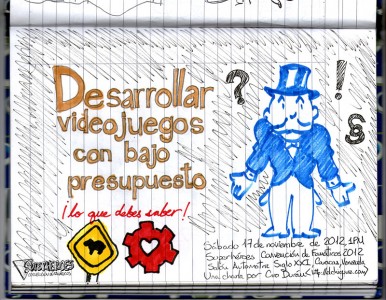 Desarrollar
videojuegos
con bajo
presupuesto
¡lo que debes saber!
? ! §
Sábado 17 de noviembre de 2012, 1PM
Superhéroes Convención de Fanáticos 2012
Salón Automotriz Siglo XXI, Caracas, Venezuela
Una charla por Ciro Durán